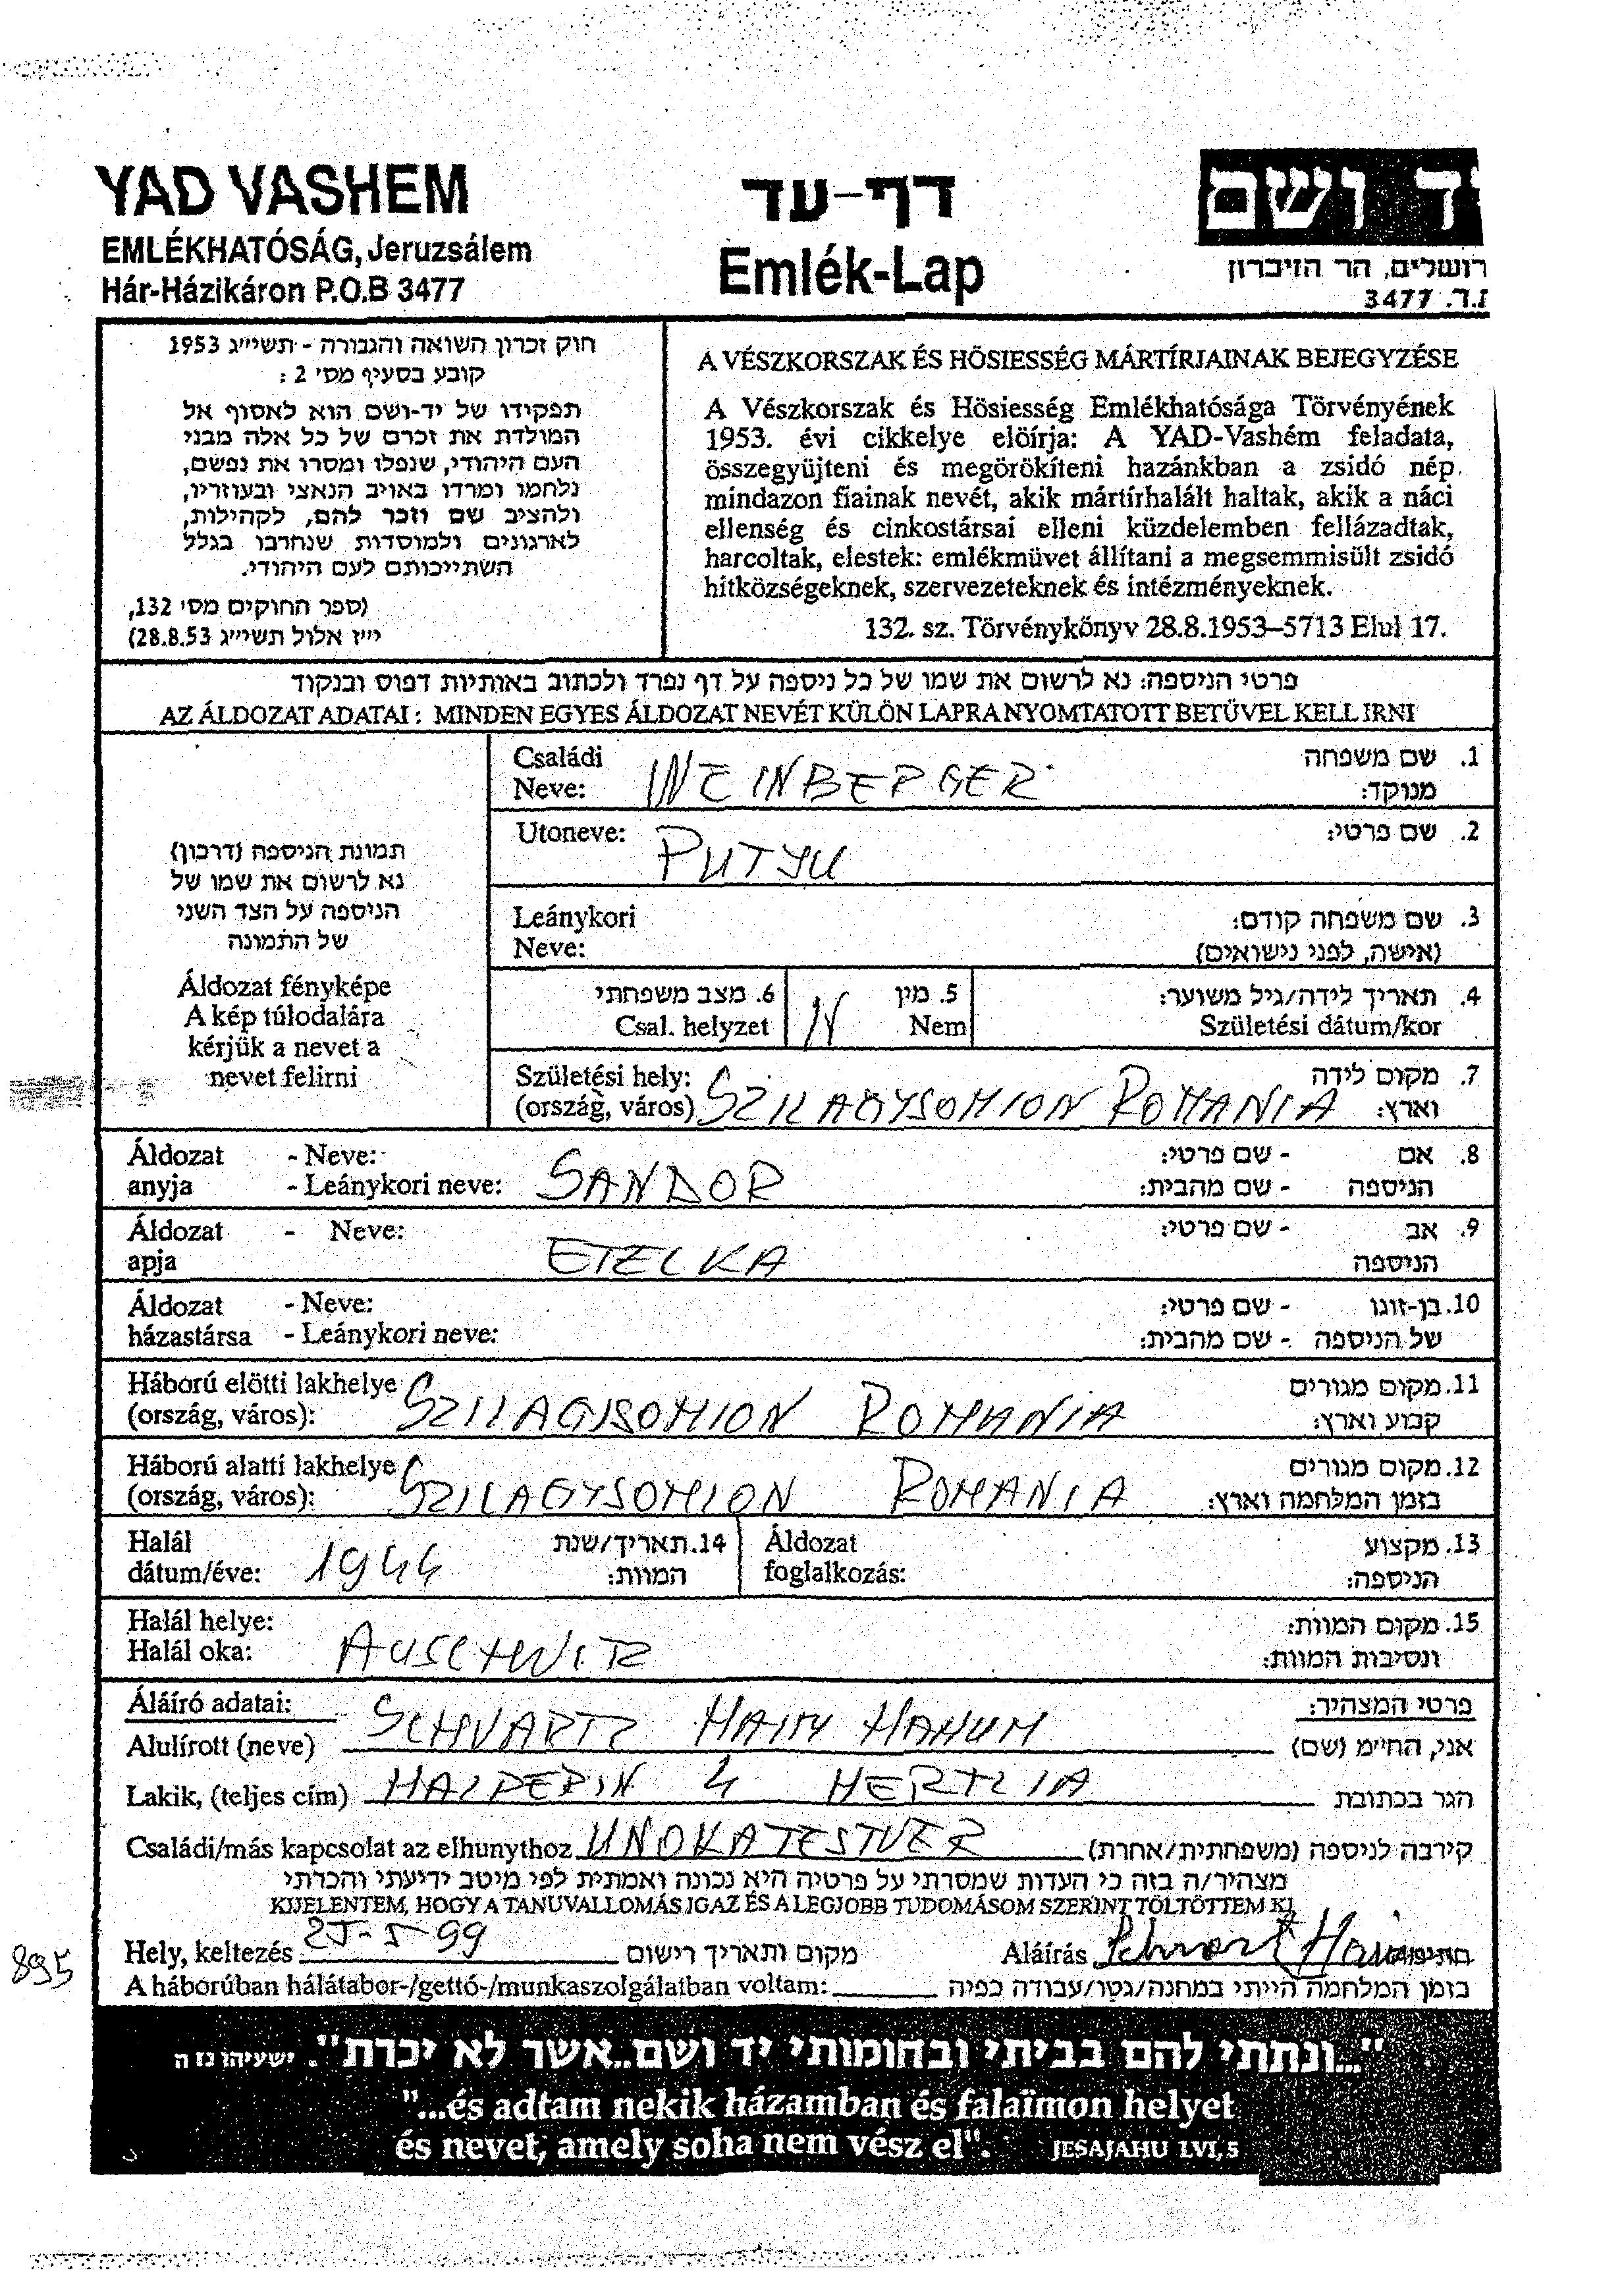 YAD VASHEM
EMLÉKHATÓSÁG, Jeruzsálem
Hár-Házikáron P.O.B 3477
דף-עד
Emlék-Lap
ד ושם
רושלים, הר הזיכרון
ת.ד. 3477
חוק זכרון השואה והגבורה - תשי״ג 1953
קובע בסעיף מס׳ 2 :
תפקידו של יד-ושם הוא לאסוף אל
המולדת את זכרם של כל אלה מבני
העם היהודי, שנפלו ומסרו את נפשם,
נלחמו ומרדו באויב הנאצי ובעוזריו,
ולהציב שם וזכר להם, לקהילות,
לארגונים ולמוסדות שנחרבו בגלל
השתייכותם לעם היהודי.
(ספר החוקים מס׳ 132,
י״ז אלול תשי״ג 28.8.53)
A VÉSZKORSZAK ÉS HÖSIESSÉG MÁRTÍRJAINAK BEJEGYZÉSE
A Vészkorszak és Hösiesség Emlékhatósága Törvényének
1953. évi cikkelye elöírja: A YAD-Vashém feladata,
összegyüjteni és megörökíteni hazánkban a zsidó nép
mindazon fiainak nevét, akik mártírhalált haltak, akik a náci
ellenség és cinkostársai elleni küzdelemben fellázadtak,
harcoltak, elestek: emlékmüvet állítani a megsemmisült zsidó
hitközségeknek, szervezeteknek és intézményeknek.
132. sz. Törvénykönyv 28.8.1953–5713 Elul 17.
פרטי הניספה: נא לרשום את שמו של כל ניספה על דף נפרד ולכתוב באותיות דפוס ובנקוד
AZ ÁLDOZAT ADATAI : MINDEN EGYES ÁLDOZAT NEVÉT KÜLÖN LAPRA NYOMTATOTT BETÜVEL KELL IRNI
תמונת הניספה (דרכון)
נא לרשום את שמו של
הניספה על הצד השני
של התמונה
Áldozat fényképe
A kép túlodalára
kérjük a nevet a
nevet felirni
Családi 1. שם משפחה
Neve: WEINBERGER מנוקד:
Utoneve: PUTYU 2. שם פרטי:
Leánykori 3. שם משפחה קודם:
Neve: (אישה, לפני נישואים)
6. מצב משפחתי N 5. מין 4. תאריך לידה/גיל משוער:
Csal. helyzet Nem Születési dátum/kor
Születési hely: 7. מקום לידה
(ország, város) SZILAGYSOMION ROMANIA וארץ:
Áldozat - Neve: 8. אם - שם פרטי:
anyja - Leánykori neve: SANDOR הניספה - שם מהבית:
Áldozat - Neve: 9. אב - שם פרטי:
apja ETELKA הניספה
Áldozat - Neve: 10. בן-זוגו - שם פרטי:
házastársa - Leánykori neve: של הניספה - שם מהבית:
Háború elötti lakhelye 11. מקום מגורים
(ország, város): SZILAGISOMION ROMANIA קבוע וארץ:
Háború alatti lakhelye 12. מקום מגורים
(ország, város): SZILAGYSOMION ROMANIA בזמן המלחמה וארץ:
Halál 14. תאריך/שנת Áldozat 13. מקצוע
dátum/éve: 1944 המוות: foglalkozás: הניספה:
Halál helye: 15. מקום המוות:
Halál oka: AUSCHWITZ ונסיבות המוות:
Áláíró adatai: פרטי המצהיר:
Alulírott (neve) SCHVARTZ HAIM HAHUM אני, החיימ (שם)
Lakik, (teljes cím) HALPERIN 4 HERTLIA הגר בכתובת
Családi/más kapcsolat az elhunythoz UNOKATESTVER קירבה לניספה (משפחתית/אחרת)
מצהיר/ה בזה כי העדות שמסרתי על פרטיה היא נכונה ואמתית לפי מיטב ידיעתי והכרתי
KIJELENTEM, HOGY A TANUVALLOMÁS IGAZ ÉS A LEGJOBB TUDOMÁSOM SZERINT TÖLTÖTTEM KI
Hely, keltezés 25-5-99 מקום ותאריך רישום Aláírás Schvartz Haim חתימה
895
A háborúban hálátabor-/gettó-/munkaszolgálatban voltam: בזמן המלחמה הייתי במחנה/גטו/עבודה כפיה
"...ונתתי להם בביתי ובחומותי יד ושם..אשר לא יכרת". ישעיהו נז ה
"...és adtam nekik házamban és falaïmon helyet
és nevet, amely soha nem vész el". JESAJAHU LVI, 5